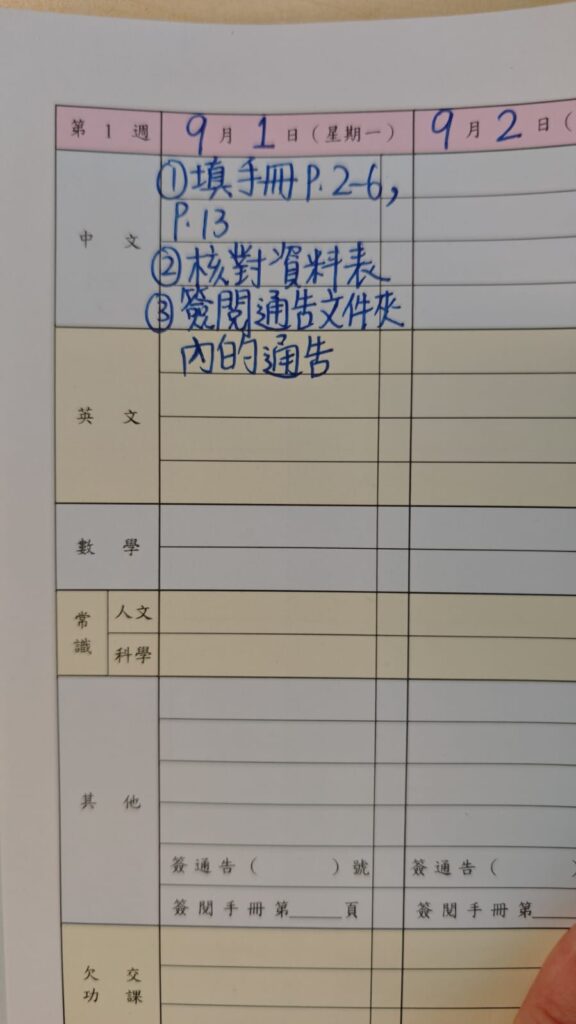 第 1 週 9月1日（星期一） 9月2日（
中文
①填手冊P.2-6,
P.13
②核對資料表
③簽閱通告文件夾
內的通告
英文
數學
常識
人文
科學
其他
簽通告（　　　）號 簽通告（　　　）
簽閱手冊第____頁 簽閱手冊第__
欠交
功課